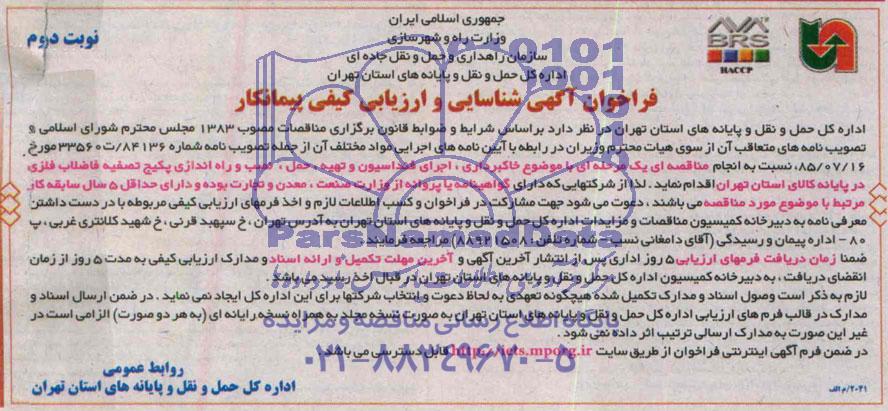 جمهوری اسلامی ایران
وزارت راه و شهرسازی
سازمان راهداری و حمل و نقل جاده ای
اداره کل حمل و نقل و پایانه های استان تهران
نوبت دوم
BRS
HACCP
فراخوان آگهی شناسایی و ارزیابی کیفی پیمانکار
اداره کل حمل و نقل و پایانه های استان تهران در نظر دارد براساس شرایط و ضوابط قانون برگزاری مناقصات مصوب ۱۳۸۳ مجلس محترم شورای اسلامی و
تصویب نامه های متعاقب آن از سوی هیات محترم وزیران در رابطه با آیین نامه های اجرایی مواد مختلف آن از جمله تصویب نامه شماره ۸۴۱۳۶/ت۳۳۵۶۰ مورخ
۸۵/۰۷/۱۶، نسبت به انجام مناقصه ای یک مرحله ای با موضوع خاکبرداری ، اجرای فنداسیون و تهیه، حمل ، نصب و راه اندازی پکیج تصفیه فاضلاب فلزی
در پایانه کالای استان تهران اقدام نماید . لذا از شرکتهایی که دارای گواهینامه یا پروانه از وزارت صنعت ، معدن و تجارت بوده و دارای حداقل ۵ سال سابقه کار
مرتبط با موضوع مورد مناقصه می باشند ، دعوت می شود جهت مشارکت در فراخوان و کسب اطلاعات لازم و اخذ فرمهای ارزیابی کیفی مربوطه با در دست داشتن
معرفی نامه به دبیرخانه کمیسیون مناقصات و مزایدات اداره کل حمل و نقل و پایانه های استان تهران به آدرس تهران ، خ سپهبد قرنی ، خ شهید کلانتری غربی ، پ
۸۰ - اداره پیمان و رسیدگی (آقای دامغانی نسب - شماره تلفن : ۸۸۹۲۱۵۰۸) مراجعه فرمایند.
ضمنا زمان دریافت فرمهای ارزیابی ۵ روز اداری پس از انتشار آخرین آگهی و آخرین مهلت تکمیل و ارائه اسناد و مدارک ارزیابی کیفی به مدت ۵ روز از زمان
انقضای دریافت ، به دبیرخانه کمیسیون اداره کل حمل و نقل و پایانه های استان تهران در قبال اخذ رسید می باشد .
لازم به ذکر است وصول اسناد و مدارک تکمیل شده هیچگونه تعهدی به لحاظ دعوت و انتخاب شرکتها برای این اداره کل ایجاد نمی نماید . در ضمن ارسال اسناد و
مدارک در قالب فرم های ارزیابی اداره کل حمل و نقل و پایانه های استان تهران به صورت نسخه مجلد به همراه نسخه رایانه ای (به هر دو صورت) الزامی است در
غیر این صورت به مدارک ارسالی ترتیب اثر داده نمی شود .
در ضمن فرم آگهی اینترنتی فراخوان از طریق سایت http://iets.mporg.ir قابل دسترسی می باشد.
روابط عمومی
اداره کل حمل و نقل و پایانه های استان تهران
۲۰۴۱/م الف
ParsNamadData
پایگاه اطلاع رسانی مناقصه و مزایده
۰۲۱-۸۸۳۴۹۶۷۰-۵